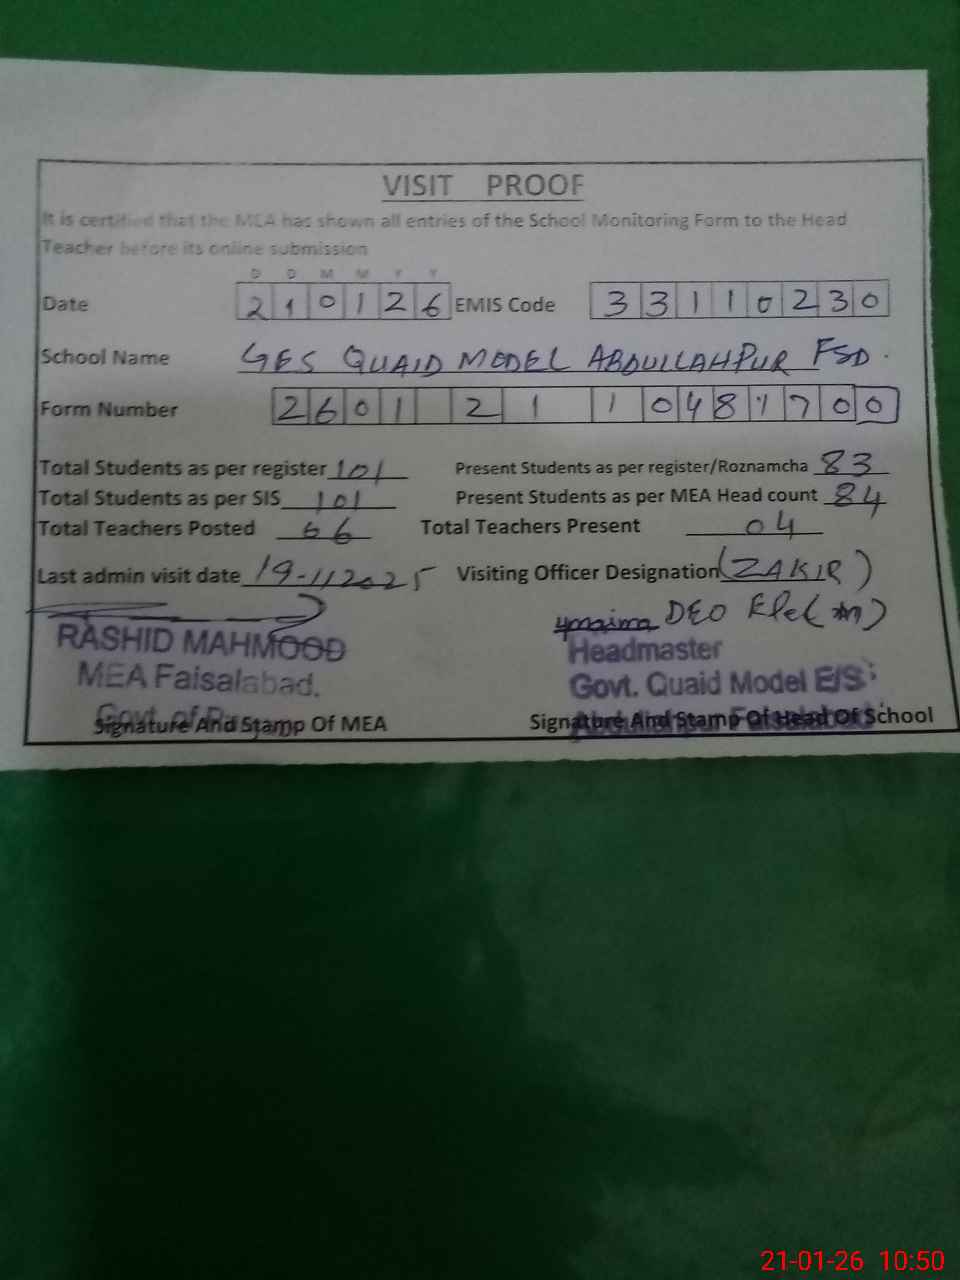 VISIT PROOF
It is certified that the MEA has shown all entries of the School Monitoring Form to the Head
Teacher before its online submission
D D M M Y Y
Date 210126 EMIS Code 33110230
School Name GES QUAID MODEL ABDULLAHPUR FSD.
Form Number 2601 21 1 10481700
Total Students as per register 101 Present Students as per register/Roznamcha 83
Total Students as per SIS 101 Present Students as per MEA Head count 84
Total Teachers Posted 06 Total Teachers Present 04
Last admin visit date 19-11-2025 Visiting Officer Designation (ZAKIR)
DEO Ele(m)
RASHID MAHMOOD Headmaster
MEA Faisalabad. Govt. Quaid Model E/S
Signature And Stamp Of MEA Signature And Stamp Of Head Of School
21-01-26 10:50